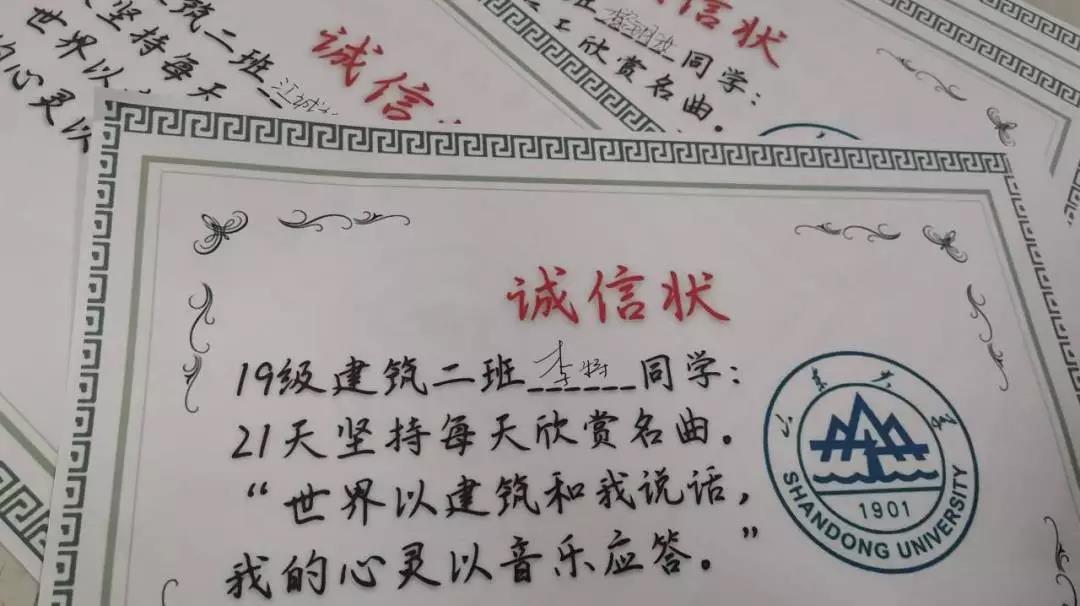 筑二班
坚持每天
世界以
的心灵以
诚信
信状
班 同学：
欣赏名曲。
诚信状
19级建筑二班 李特 同学：
21天坚持每天欣赏名曲。
“世界以建筑和我说话，
我的心灵以音乐应答。”
山东大学
1901
SHANDONG UNIVERSITY